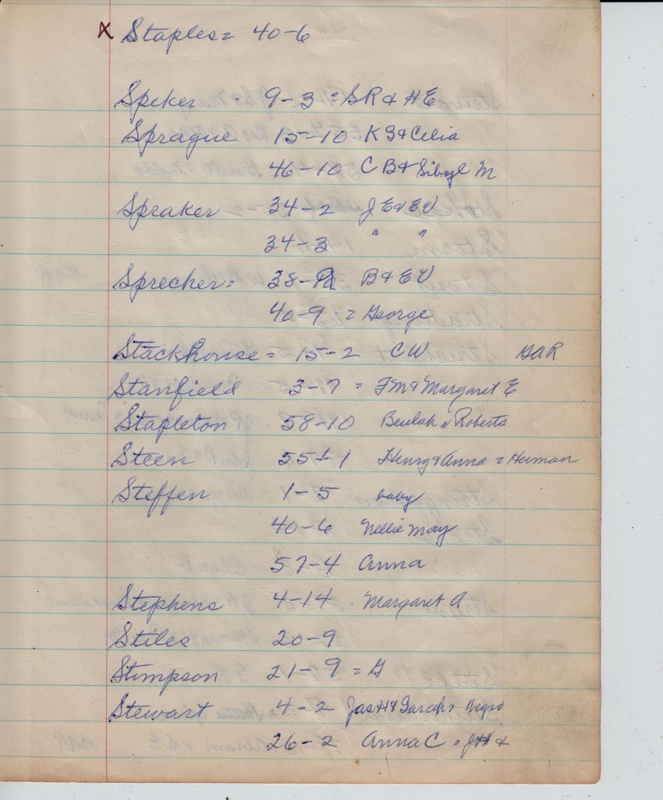 x Staples = 40-6
Speker = 9-3 = SR & HE
Sprague 15-10 K S & Celia
46-10 C B & Sibyl M
Speaker 34-2 J E & EV
34-3 " "
Sprecher = 38- B & EV
40-9 = George
Stackhouse = 15-2 CW GAR
Stanfield 3-7 = FM & Margaret E
Stapleton 58-10 Beulah Roberts
Steen 55-1 Henry & Anna = Herman
Steffen 1-5 baby
40-6 Nellie May
57-4 Anna
Stephens 4-14 Margaret A
Stiles 20-9
Stimpson 21-9 = G
Stewart 4-2 Jas H & Sarah = Negro
26-2 Anna C = &